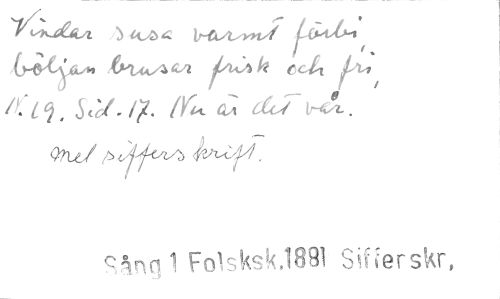 Vindar susa varmt förbi,
böljan brusar frisk och fri,
N.19. Sid.17. Nu är det vår.
mel sifferskrift.
Sång 1 Folsksk.1881 Sifferskr,